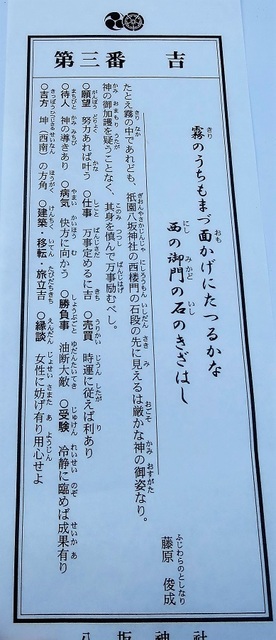 第三番 吉
霧のうちもまづ面かげにたつるかな
西の御門の石のきざはし
藤原 俊成
たとえ霧の中であれども、祇園八坂神社の西楼門の石段の先に見えるは厳かな神の御姿なり。
神の御加護を疑うことなく、其身を慎んで万事励むべし。
◯願望 努力あれば叶う ◯仕事 万事定めるに吉 ◯売買 時運に従えば利あり
◯待人 神の導きあり ◯病気 快方に向かう ◯勝負事 油断大敵 ◯受験 冷静に臨めば成果有り
◯吉方 坤(西南)の方角 ◯建築・移転・旅立吉 ◯縁談 女性に妨げ有り用心せよ
八坂神社